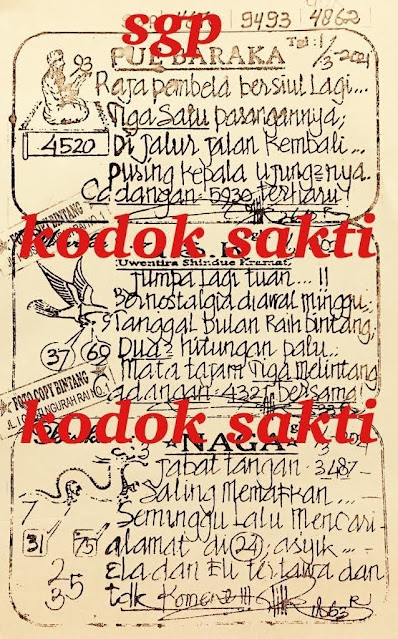 9493 4862
sgp
Tgl: 1/3-2021
PUE BARAKA
93
Raja pembela bersiul lagi...
Tiga Satu pasangannya;
4520
Di jalur jalan kembali...
pusing kepala ujung2nya.
Cadangan: 5930 terbaru!
kodok sakti
Uwentira Shindue Kramat
jumpa lagi tuan...!!
Bernostalgia di awal minggu;
Tanggal bulan Raih bintang,
37 69
Dua2 hitungan palu..
Mata tapam Tiga melintang
FOTO COPY BINTANG
JL. I GUSTI NGURAH RAI NO. 1
Cadangan: 4321 bersama!
kodok sakti
NAGA
jabat tangan: 3487-
Saling memaafkan...
7
Seminggu lalu mencari-
31 75
alamat di (24); asyik...
25
Ela dan Elu tertawa dan
35
tdk komen2